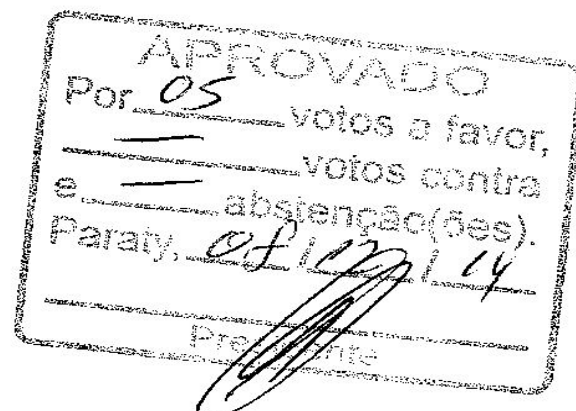 APROVADO
Por 05 votos a favor,
— votos contra
e — abstenção(ões).
Paraty, / / 14
Presidente